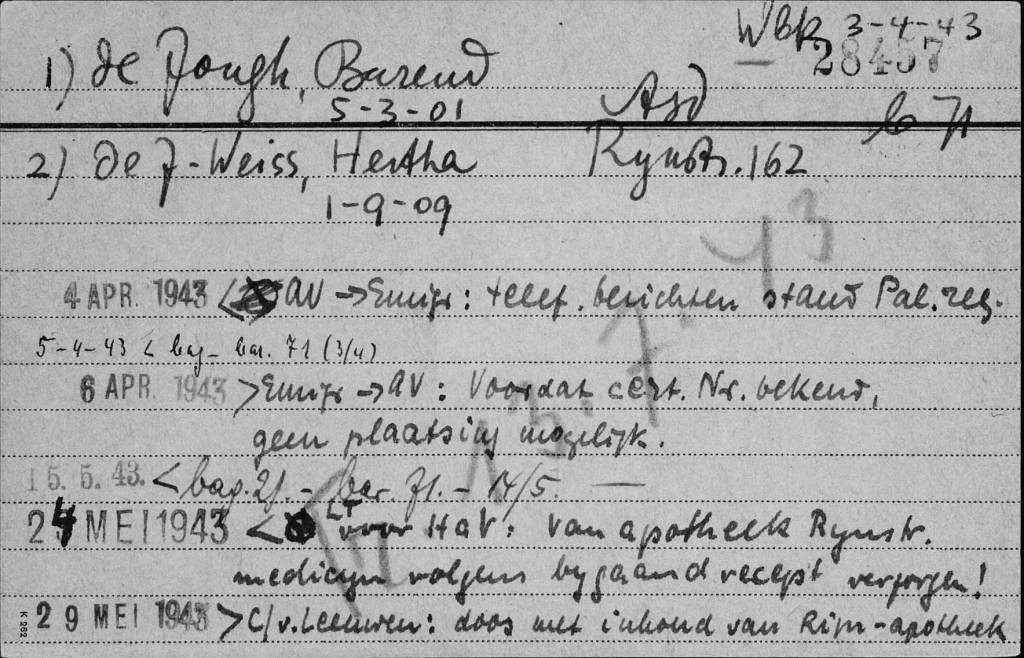 Wbk 3-4-43
28457
1) de Jongh, Barend
5-3-01
Asd
b 71
2) de J-Weiss, Hertha
Rynstr. 162
1-9-09
4 APR. 1943 < AV → Emigr: telef. berichten stand Pal. reg.
5-4-43 < bag- bar. 71 (3/4)
6 APR. 1943 > Emigr → AV: Voordat cert. Nr. bekend,
geen plaatsing mogelijk.
15.5.43. < bag. 21. - bar. 71. - 14/5. —
24 MEI 1943 < LT voor HaV: Van apotheek Rynstr.
medicyn volgens bygaand recept verzorgen!
K 262 29 MEI 1943 > C/v. Leeuwen: doos met inhoud van Rijn-apotheek